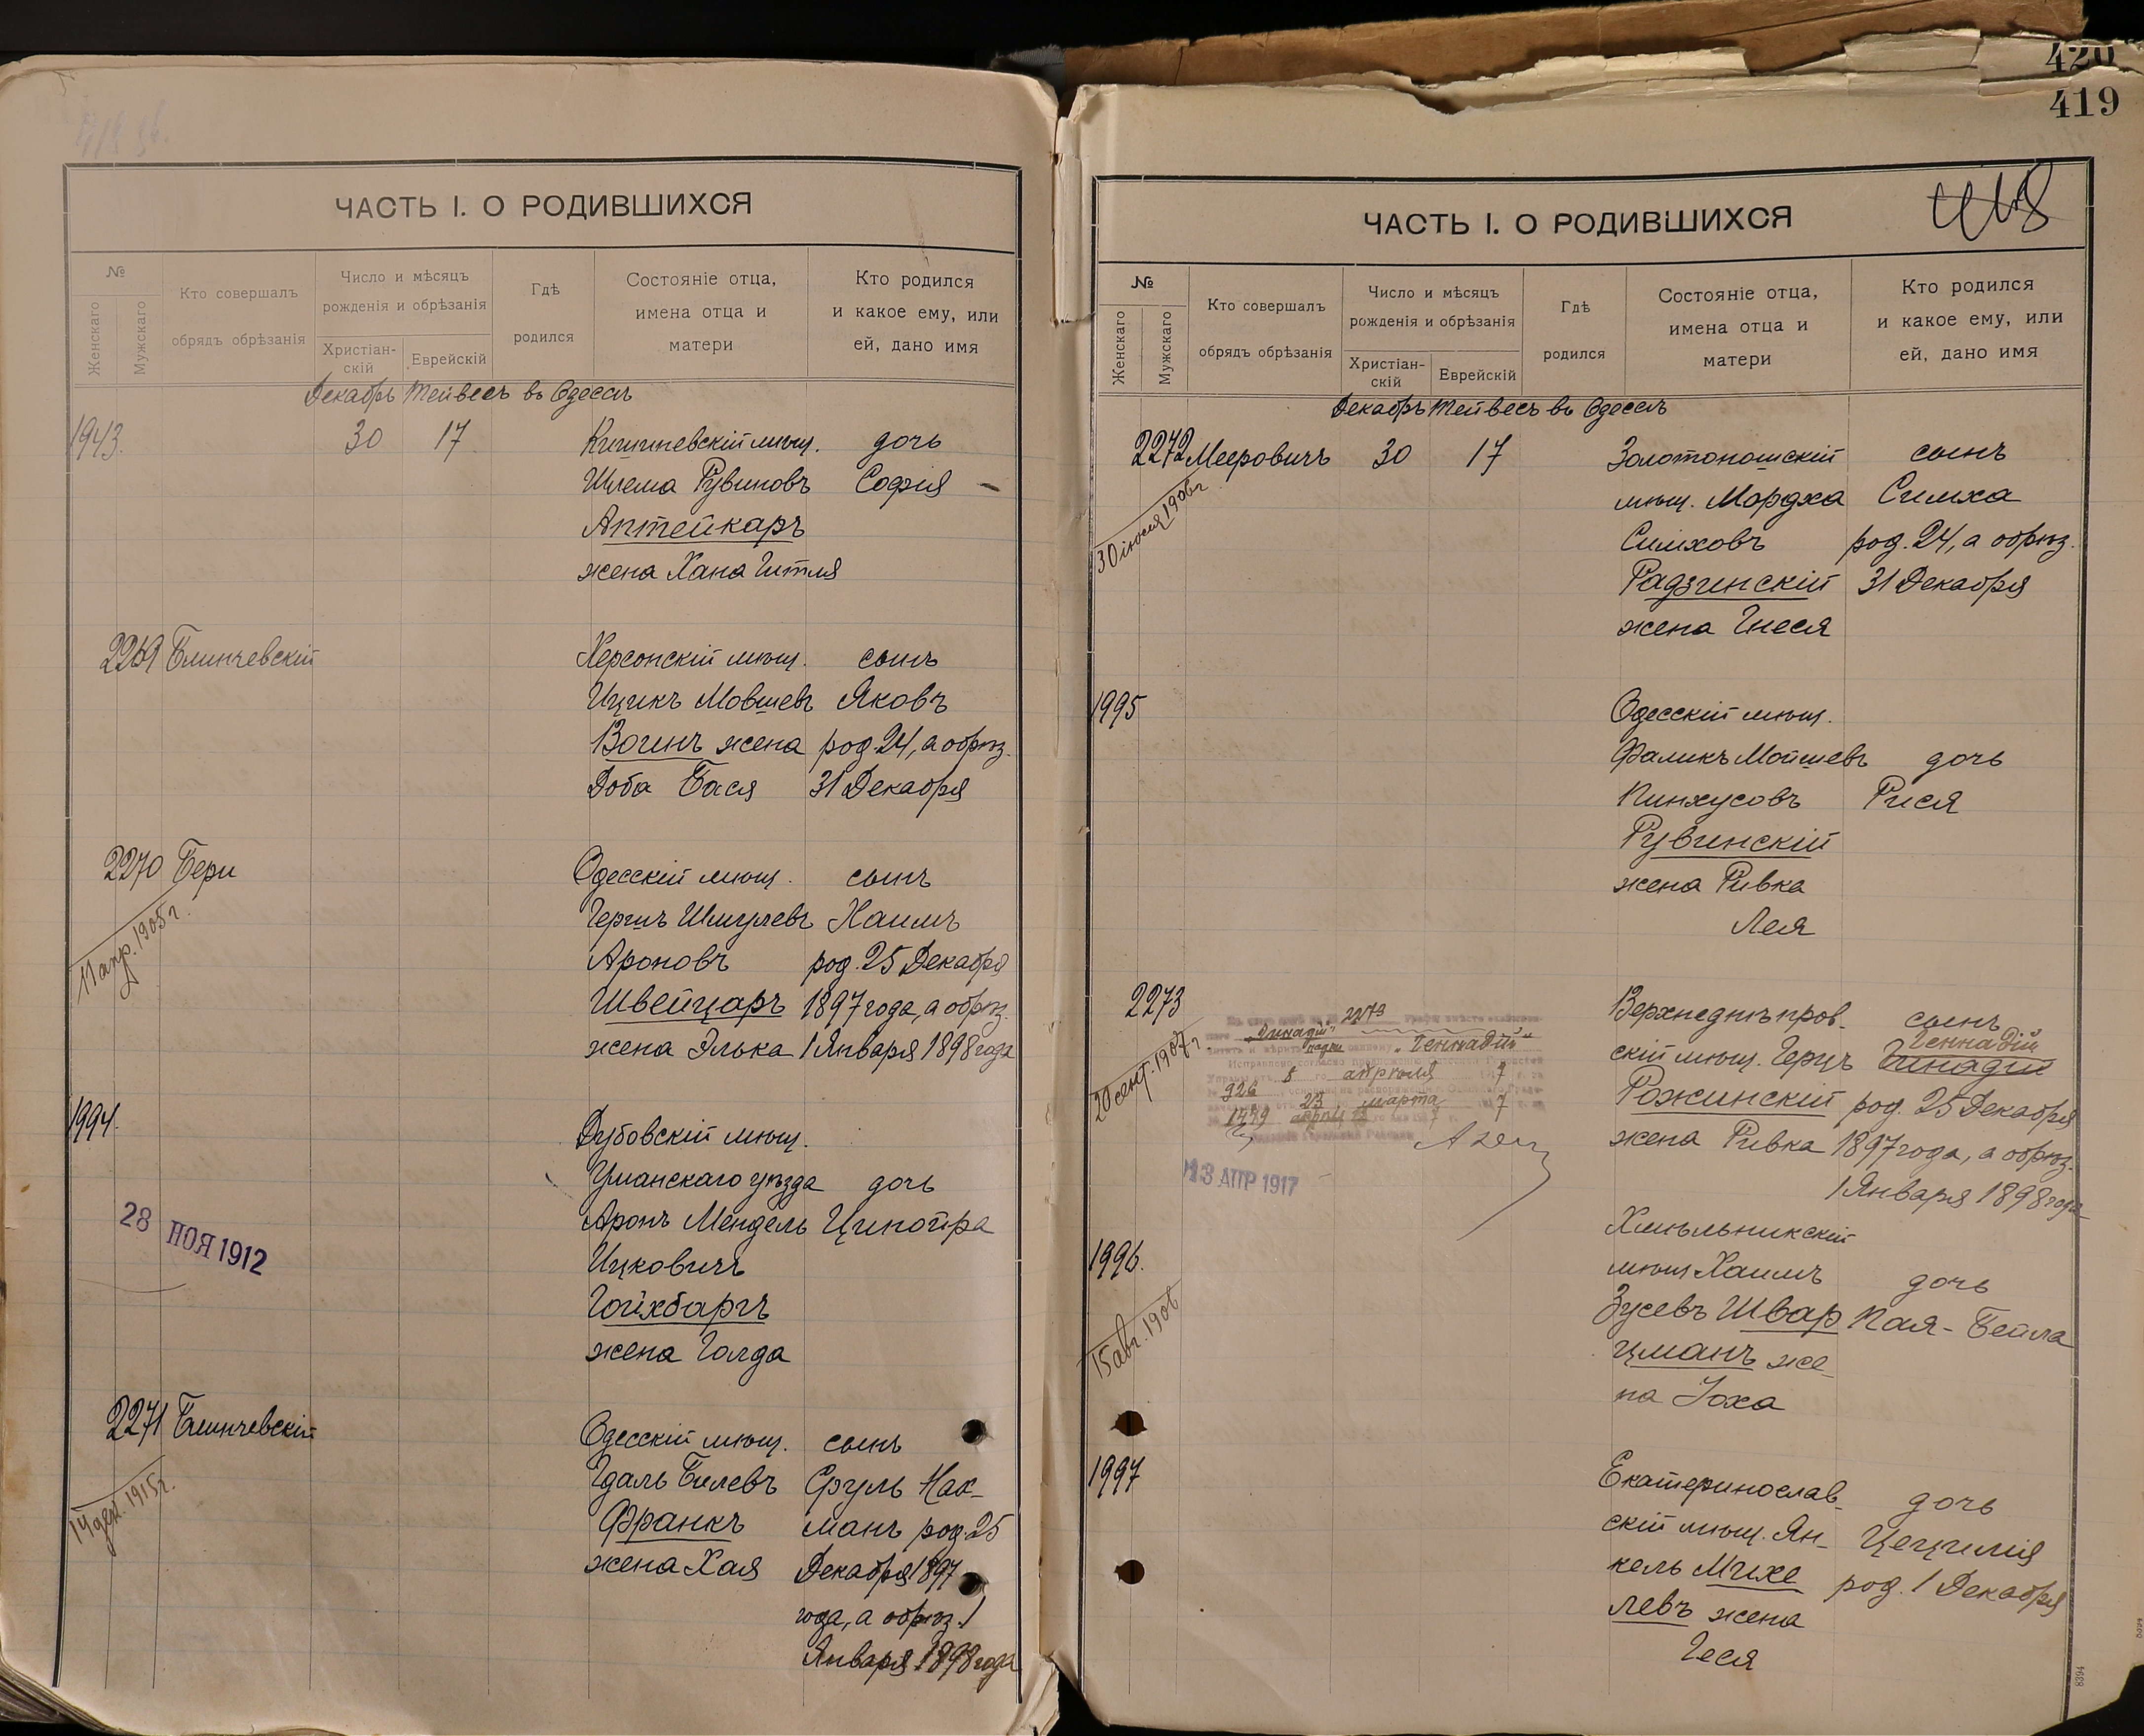 ЧАСТЬ I. О РОДИВШИХСЯ
№
Женскаго
Мужскаго
Кто совершалъ
обрядъ обрѣзанія
Число и мѣсяцъ
рожденія и обрѣзанія
Христіан-
скій
Еврейскій
Гдѣ
родился
Состояніе отца,
имена отца и
матери
Кто родился
и какое ему, или
ей, дано имя
Декабрь Тейвесъ въ Одессѣ
1943. 30 17 Кишиневскій мѣщ. дочь
Шлема Рувиновъ София
Аптейкаръ
жена Хана Гитля
2269 Блинчевскій Херсонскій мѣщ. сынъ
Ицикъ Мовшевъ Яковъ
Вогинъ жена род. 24, а обрѣз.
Доба Бася 31 Декабря
2270 Бери Одесскій мѣщ. сынъ
11 апр. 1905 г.
Гершъ Шмулевъ Хаимъ
Ароновъ род. 25 Декабря
Швейцаръ 1897 года, а обрѣз.
жена Элька 1 Января 1898 года
1994. Дубовскій мѣщ.
Уманскаго уѣзда дочь
28 НОЯ 1912
Аронъ Мендель Ципойра
Ицковичъ
Гойхбаргъ
жена Голда
2271 Блинчевскій Одесскій мѣщ. сынъ
14 дек. 1915 г.
Гдаль Билевъ Сруль Нах-
Франкъ манъ род. 25
жена Хая Декабря 1897
года, а обрѣз. 1
Января 1898 года
420
419
418
ЧАСТЬ I. О РОДИВШИХСЯ
№
Женскаго
Мужскаго
Кто совершалъ
обрядъ обрѣзанія
Число и мѣсяцъ
рожденія и обрѣзанія
Христіан-
скій
Еврейскій
Гдѣ
родился
Состояніе отца,
имена отца и
матери
Кто родился
и какое ему, или
ей, дано имя
Декабрь Тейвесъ въ Одессѣ
2272 Мееровичъ 30 17 Золотоношскій сынъ
30 іюня 1906 г.
мѣщ. Мордха Симха
Симховъ род. 24, а обрѣз.
Радзинскій 31 Декабря
жена Гнеся
1995 Одесскій мѣщ.
Фаликъ Мойшевъ дочь
Пинхусовъ Рися
Рувинскій
жена Ривка
Лея
2273 Верхнеднѣпров- сынъ
20 сент. 1907 г.
2273
"Динадій"
"Геннадій"
8 апрѣля 7
926 23 марта 7
1779
13 АПР 1917
Геннадій
скій мѣщ. Герцъ Динадій
Рожинскій род. 25 Декабря
жена Ривка 1897 года, а обрѣз.
1 Января 1898 года
1996. Хмѣльникскій
15 авг. 1906
мѣщ Хаимъ дочь
Зусевъ Швар Пая-Бейла
цманъ же
на Юха
1997 Екатеринослав- дочь
скій мѣщ. Ян- Цецилія
кель Михе род. 1 Декабря
левъ жена
Геся
8394